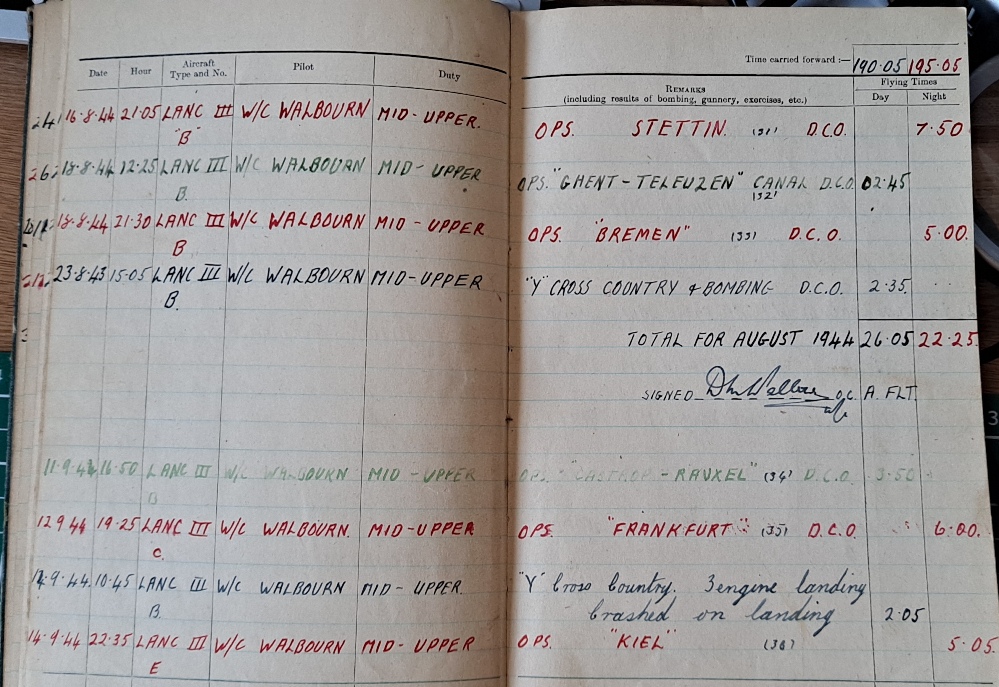 Date Hour Aircraft Type and No. Pilot Duty
Time carried forward :— 190.05 195.05
REMARKS (including results of bombing, gunnery, exercises, etc.) Flying Times Day Night
16.8.44 21.05 LANC III W/C WALBOURN MID-UPPER. OPS. STETTIN. (31) D.C.O. 7.50
"B"
18.8.44 12.25 LANC III W/C WALBOURN MID-UPPER OPS. "GHENT-TELEUZEN" CANAL D.C.O. 02.45
B. (32)
18.8.44 21.30 LANC III W/C WALBOURN MID-UPPER OPS. "BREMEN" (33) D.C.O. 5.00.
B
23.8.43 15.05 LANC III W/C WALBOURN MID-UPPER "Y" CROSS COUNTRY & BOMBING D.C.O. 2.35.
B.
TOTAL FOR AUGUST 1944 26.05 22.25
SIGNED O.C. A. FLT.
11.9.44 16.50 LANC III W/C WALBOURN MID-UPPER OPS. "CASTROP-RAUXEL" (34) D.C.O. 3.50
B
12 9 44 19.25 LANC III W/C WALBOURN. MID-UPPER OPS. "FRANKFURT" (35) D.C.O. 6.00.
C.
9.44 10.45 LANC III W/C WALBOURN MID-UPPER. "Y" Cross Country. 3 engine landing
B. Crashed on landing 2.05
14.9.44 22.35 LANC III W/C WALBOURN MID-UPPER OPS. "KIEL" (36) 5.05.
E